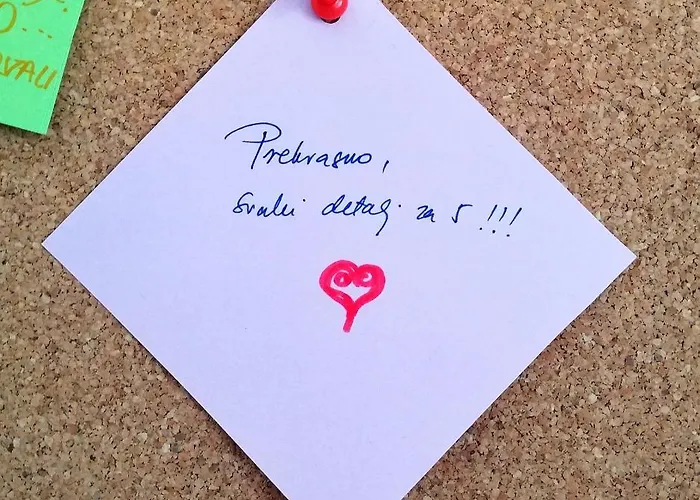 O...
OVALI
Prekrasno,
svaki detalj za 5 !!!